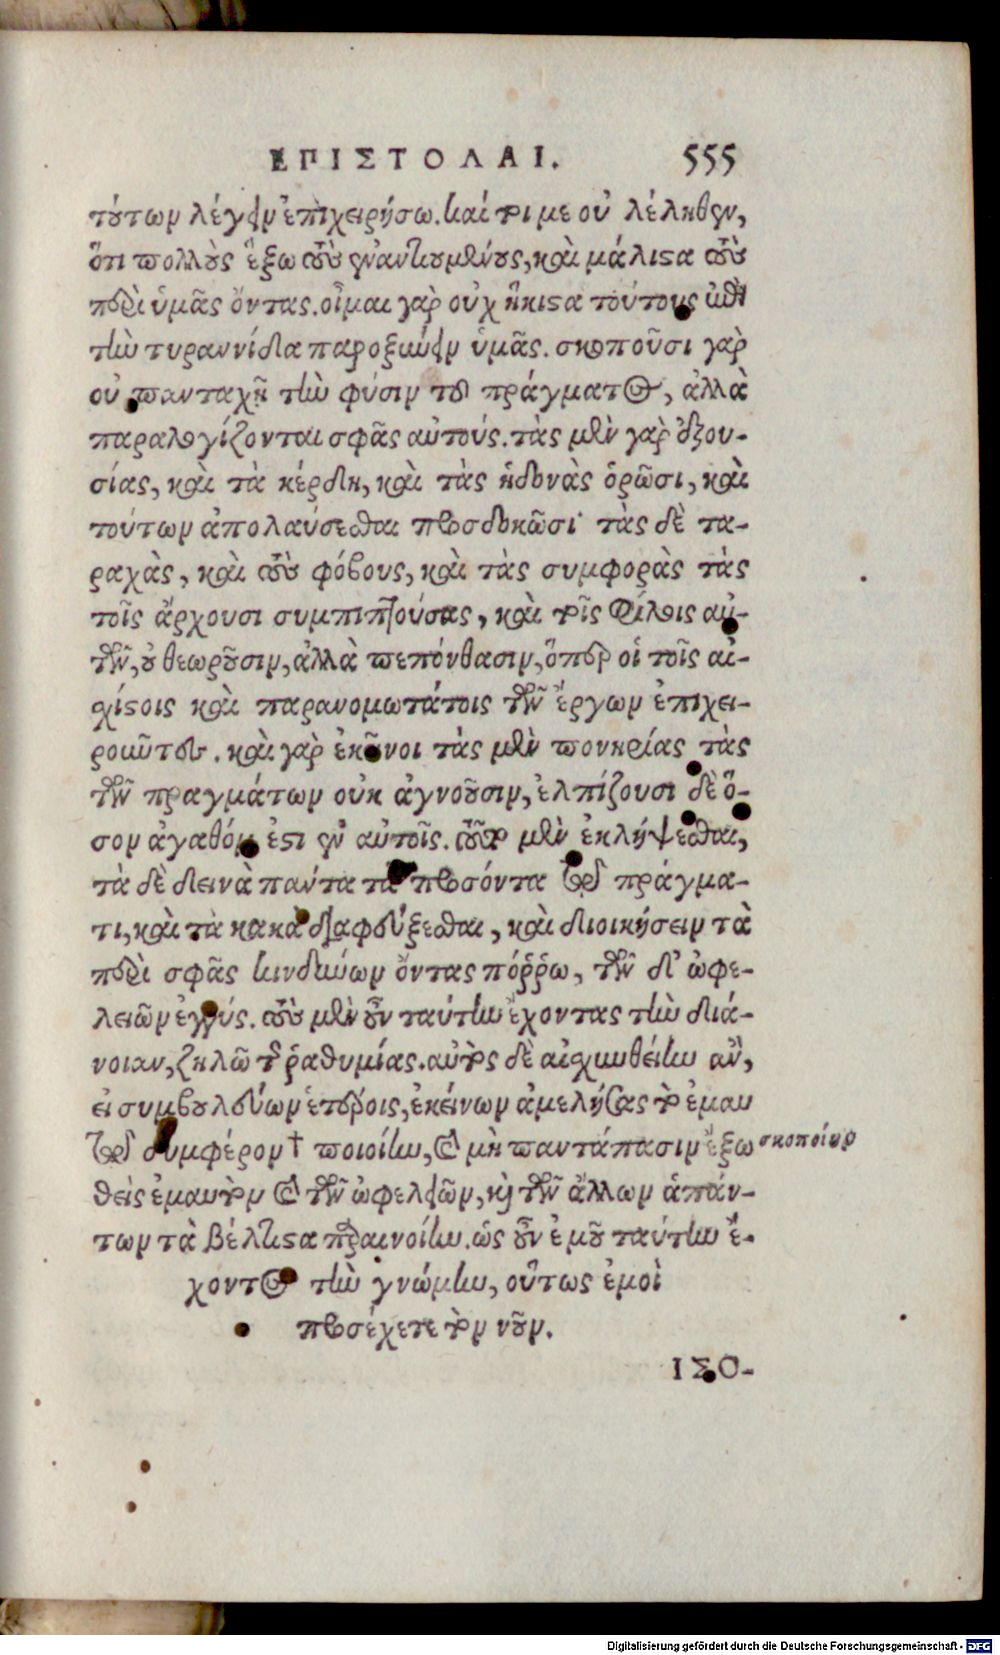 ΕΠΙΣΤΟΛΑΙ. 555
τούτων λέγειν ἐπιχειρήσω. καί τοι με οὐ λέληθεν,
ὅτι πολλοὺς ἕξω τοὺς ἐναντιουμένους, καὶ μάλιστα τοὺς
περὶ ὑμᾶς ὄντας. οἶμαι γὰρ οὐχ ἥκιστα τούτους ἐπὶ
τὴν τυραννίδα παροξύνειν ὑμᾶς. σκοποῦσι γὰρ
οὐ πανταχῇ τὴν φύσιν τοῦ πράγματος, ἀλλὰ
παραλογίζονται σφᾶς αὐτούς. τὰς μὲν γὰρ ἐξου-
σίας, καὶ τὰ κέρδη, καὶ τὰς ἡδονὰς ὁρῶσι, καὶ
τούτων ἀπολαύσεσθαι προσδοκῶσι· τὰς δὲ τα-
ραχὰς, καὶ τοὺς φόβους, καὶ τὰς συμφορὰς τὰς
τοῖς ἄρχουσι συμπιπτούσας, καὶ τοῖς φίλοις αὐ-
τῶν, οὐ θεωροῦσιν, ἀλλὰ πεπόνθασιν, ὅπερ οἱ τοῖς αἰ-
σχίστοις καὶ παρανομωτάτοις τῶν ἔργων ἐπιχει-
ροῦντες. καὶ γὰρ ἐκεῖνοι τὰς μὲν πονηρίας τὰς
τῶν πραγμάτων οὐκ ἀγνοοῦσιν, ἐλπίζουσι δὲ ὅ-
σον ἀγαθόν ἐστι ἐν αὐτοῖς. τοῦτο μὲν ἐκλήψεσθαι,
τὰ δὲ δεινὰ πάντα τὰ προσόντα τῷ πράγμα-
τι, καὶ τὰ κακὰ διαφεύξεσθαι, καὶ διοικήσειν τὰ
περὶ σφᾶς κινδύνων ὄντας πόῤῥω, τῶν δ' ὠφε-
λειῶν ἐγγύς. τοὺς μὲν οὖν ταύτην ἔχοντας τὴν διά-
νοιαν, ζηλῶ τῆς ῥαθυμίας. αὐτὸς δὲ αἰσχυνθείην ἂν,
εἰ συμβουλεύων ἑτέροις, ἐκείνων ἀμελήσας τὸ ἐμαυ
τῷ συμφέρον † ποιοίην, καὶ μὴ παντάπασιν ἔξω
σκοποίην
θεὶς ἐμαυτὸν καὶ τῶν ὠφελειῶν, καὶ τῶν ἄλλων ἁπάν-
των τὰ βέλτιστα παραινοίην. ὡς οὖν ἐμοῦ ταύτην ἔ-
χοντος τὴν γνώμην, οὕτως ἐμοὶ
προσέχετε τὸν νοῦν.
ΙΣΟ-
Digitalisierung gefördert durch die Deutsche Forschungsgemeinschaft - DFG